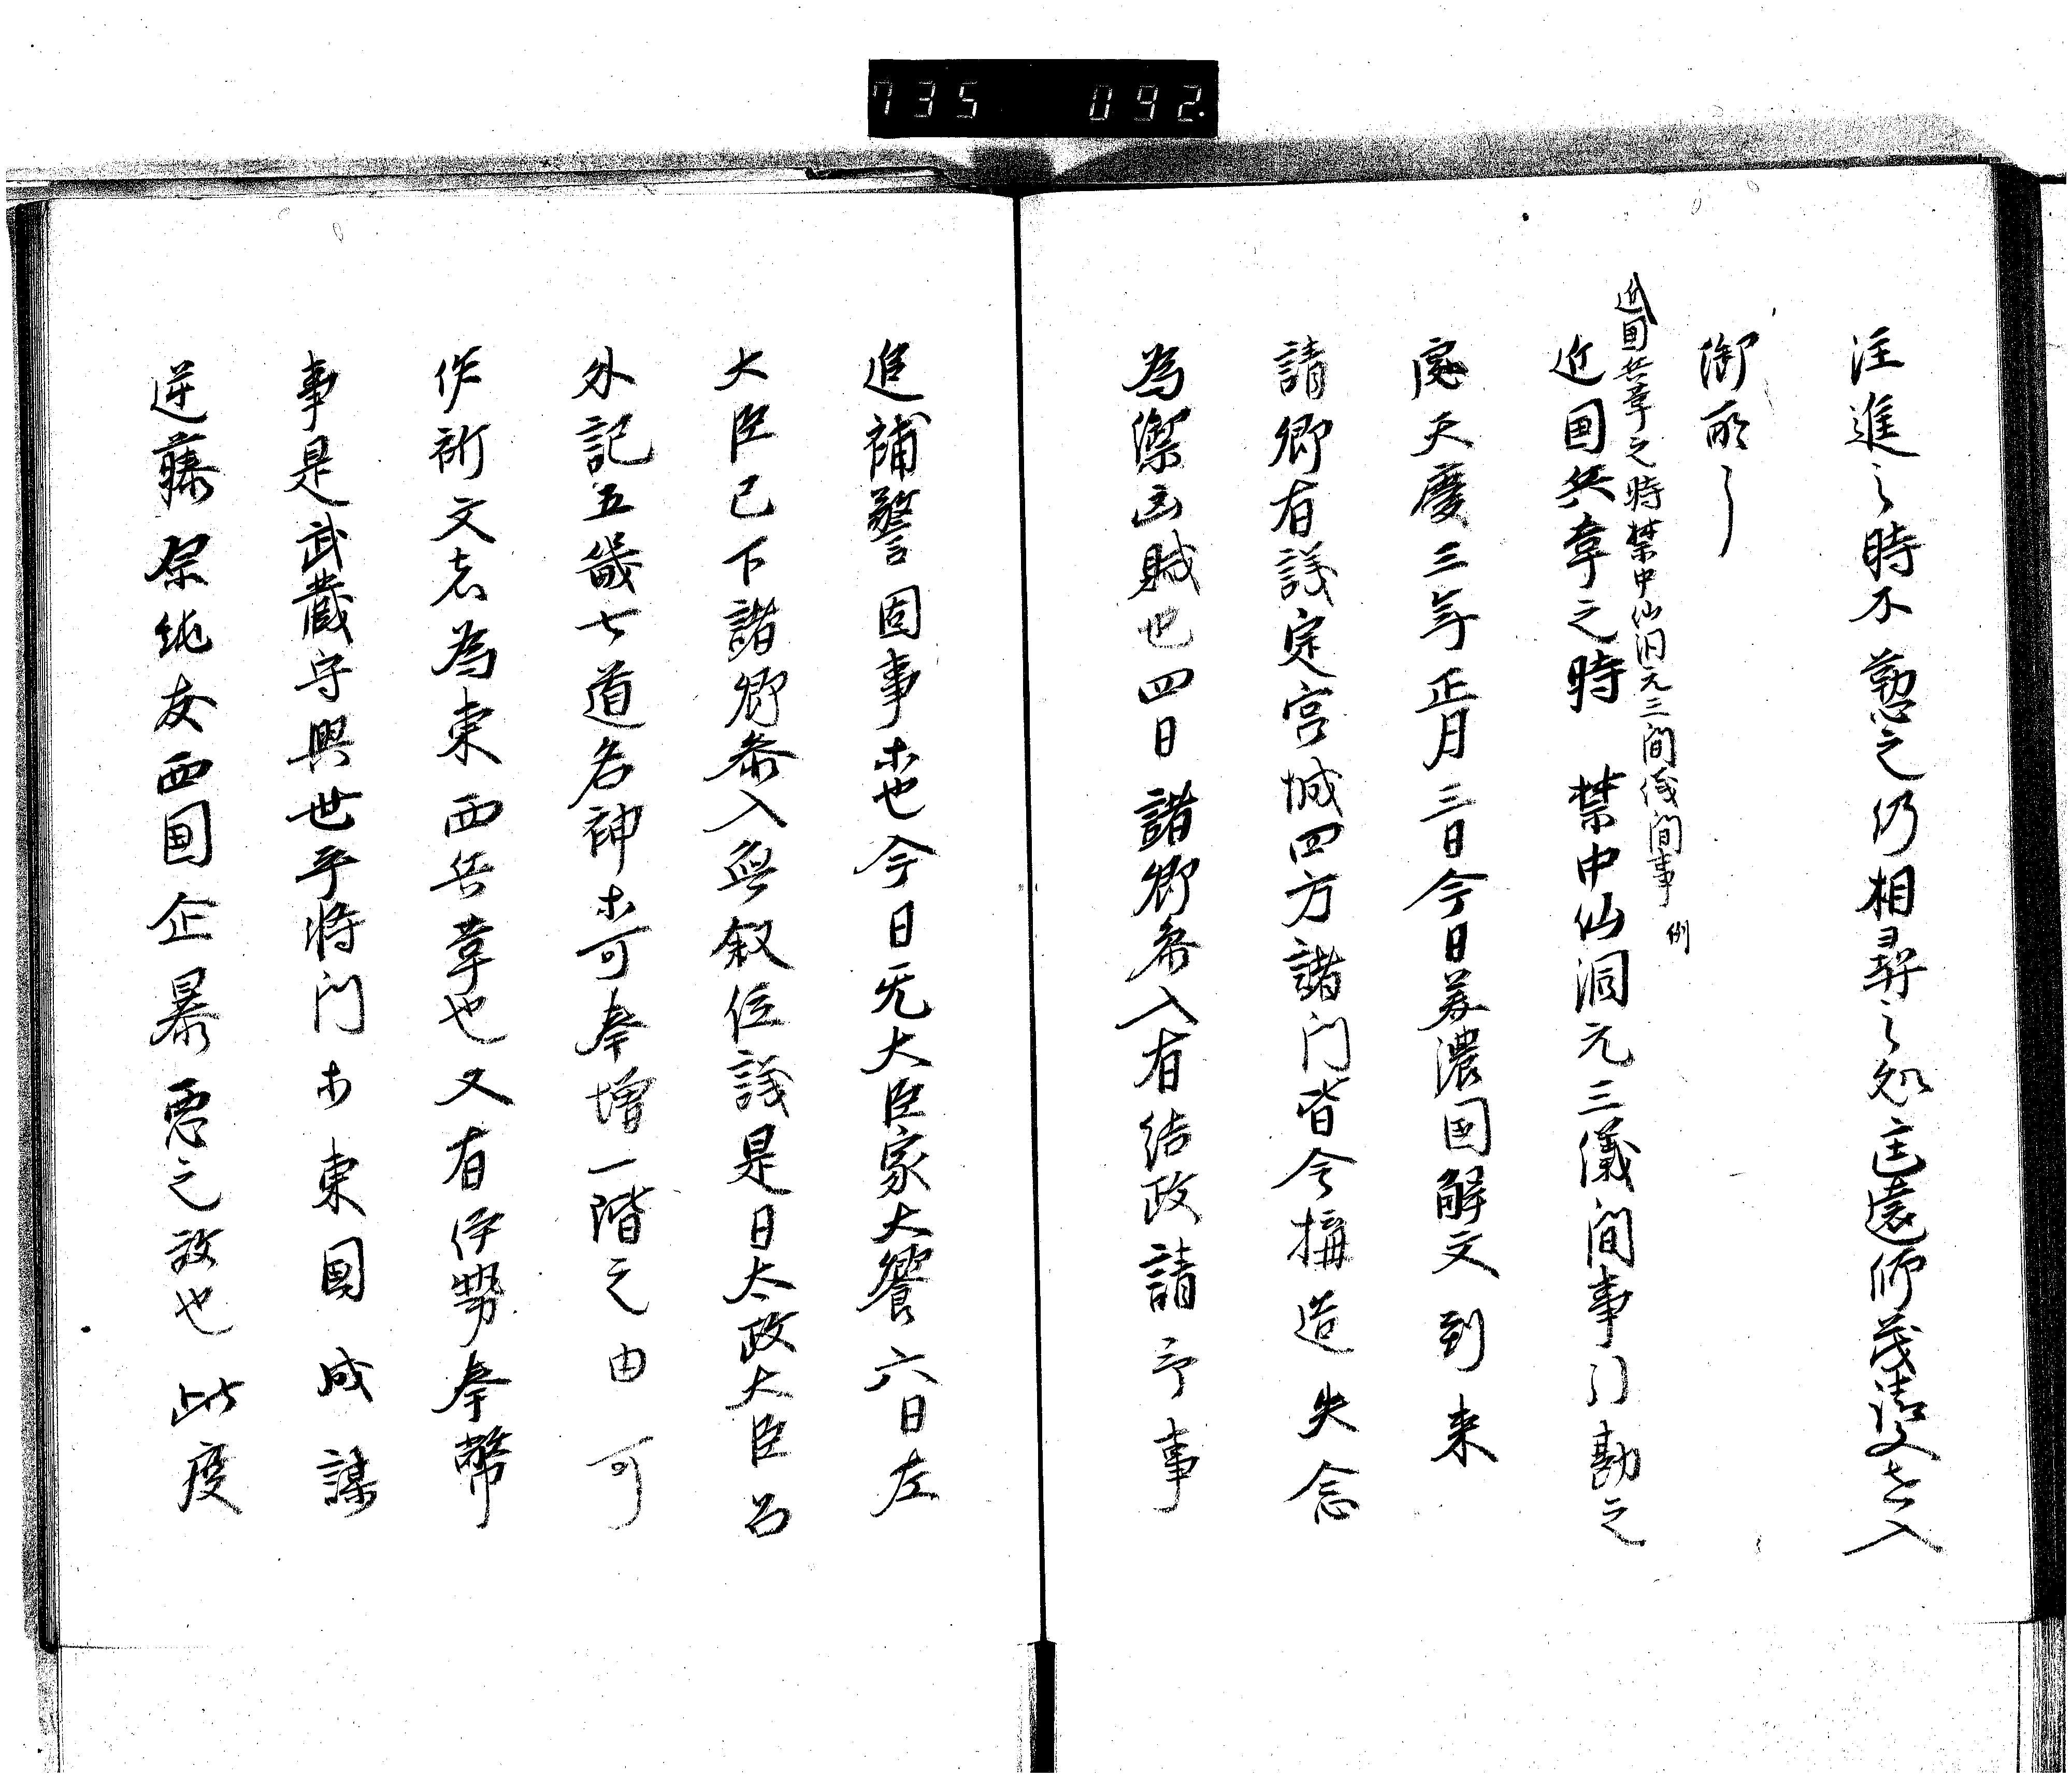 735 092
注進之時不懃之仍相尋之処匡遠師茂請文已入
御所了
近国兵革之時禁中仙洞元三間儀間事 例
近国兵革之時 禁中仙洞元三儀間事引勘之
処天慶三年正月三日今日美濃国解文到来
諸卿有議定宮城四方諸門皆令構造矢倉
為禦凶賊也四日諸卿参入有結政請印事
追補警固事ホ也今日无大臣家大饗六日左
大臣已下諸卿参入無叙位議是日太政大臣召
外記五畿七道名神ホ可奉増一階之由可
作祈文者為東西兵革也又有伊勢奉幣
事是武蔵守興世平将門ホ東国成謀
逆藤原純友西国企暴悪之故也此度